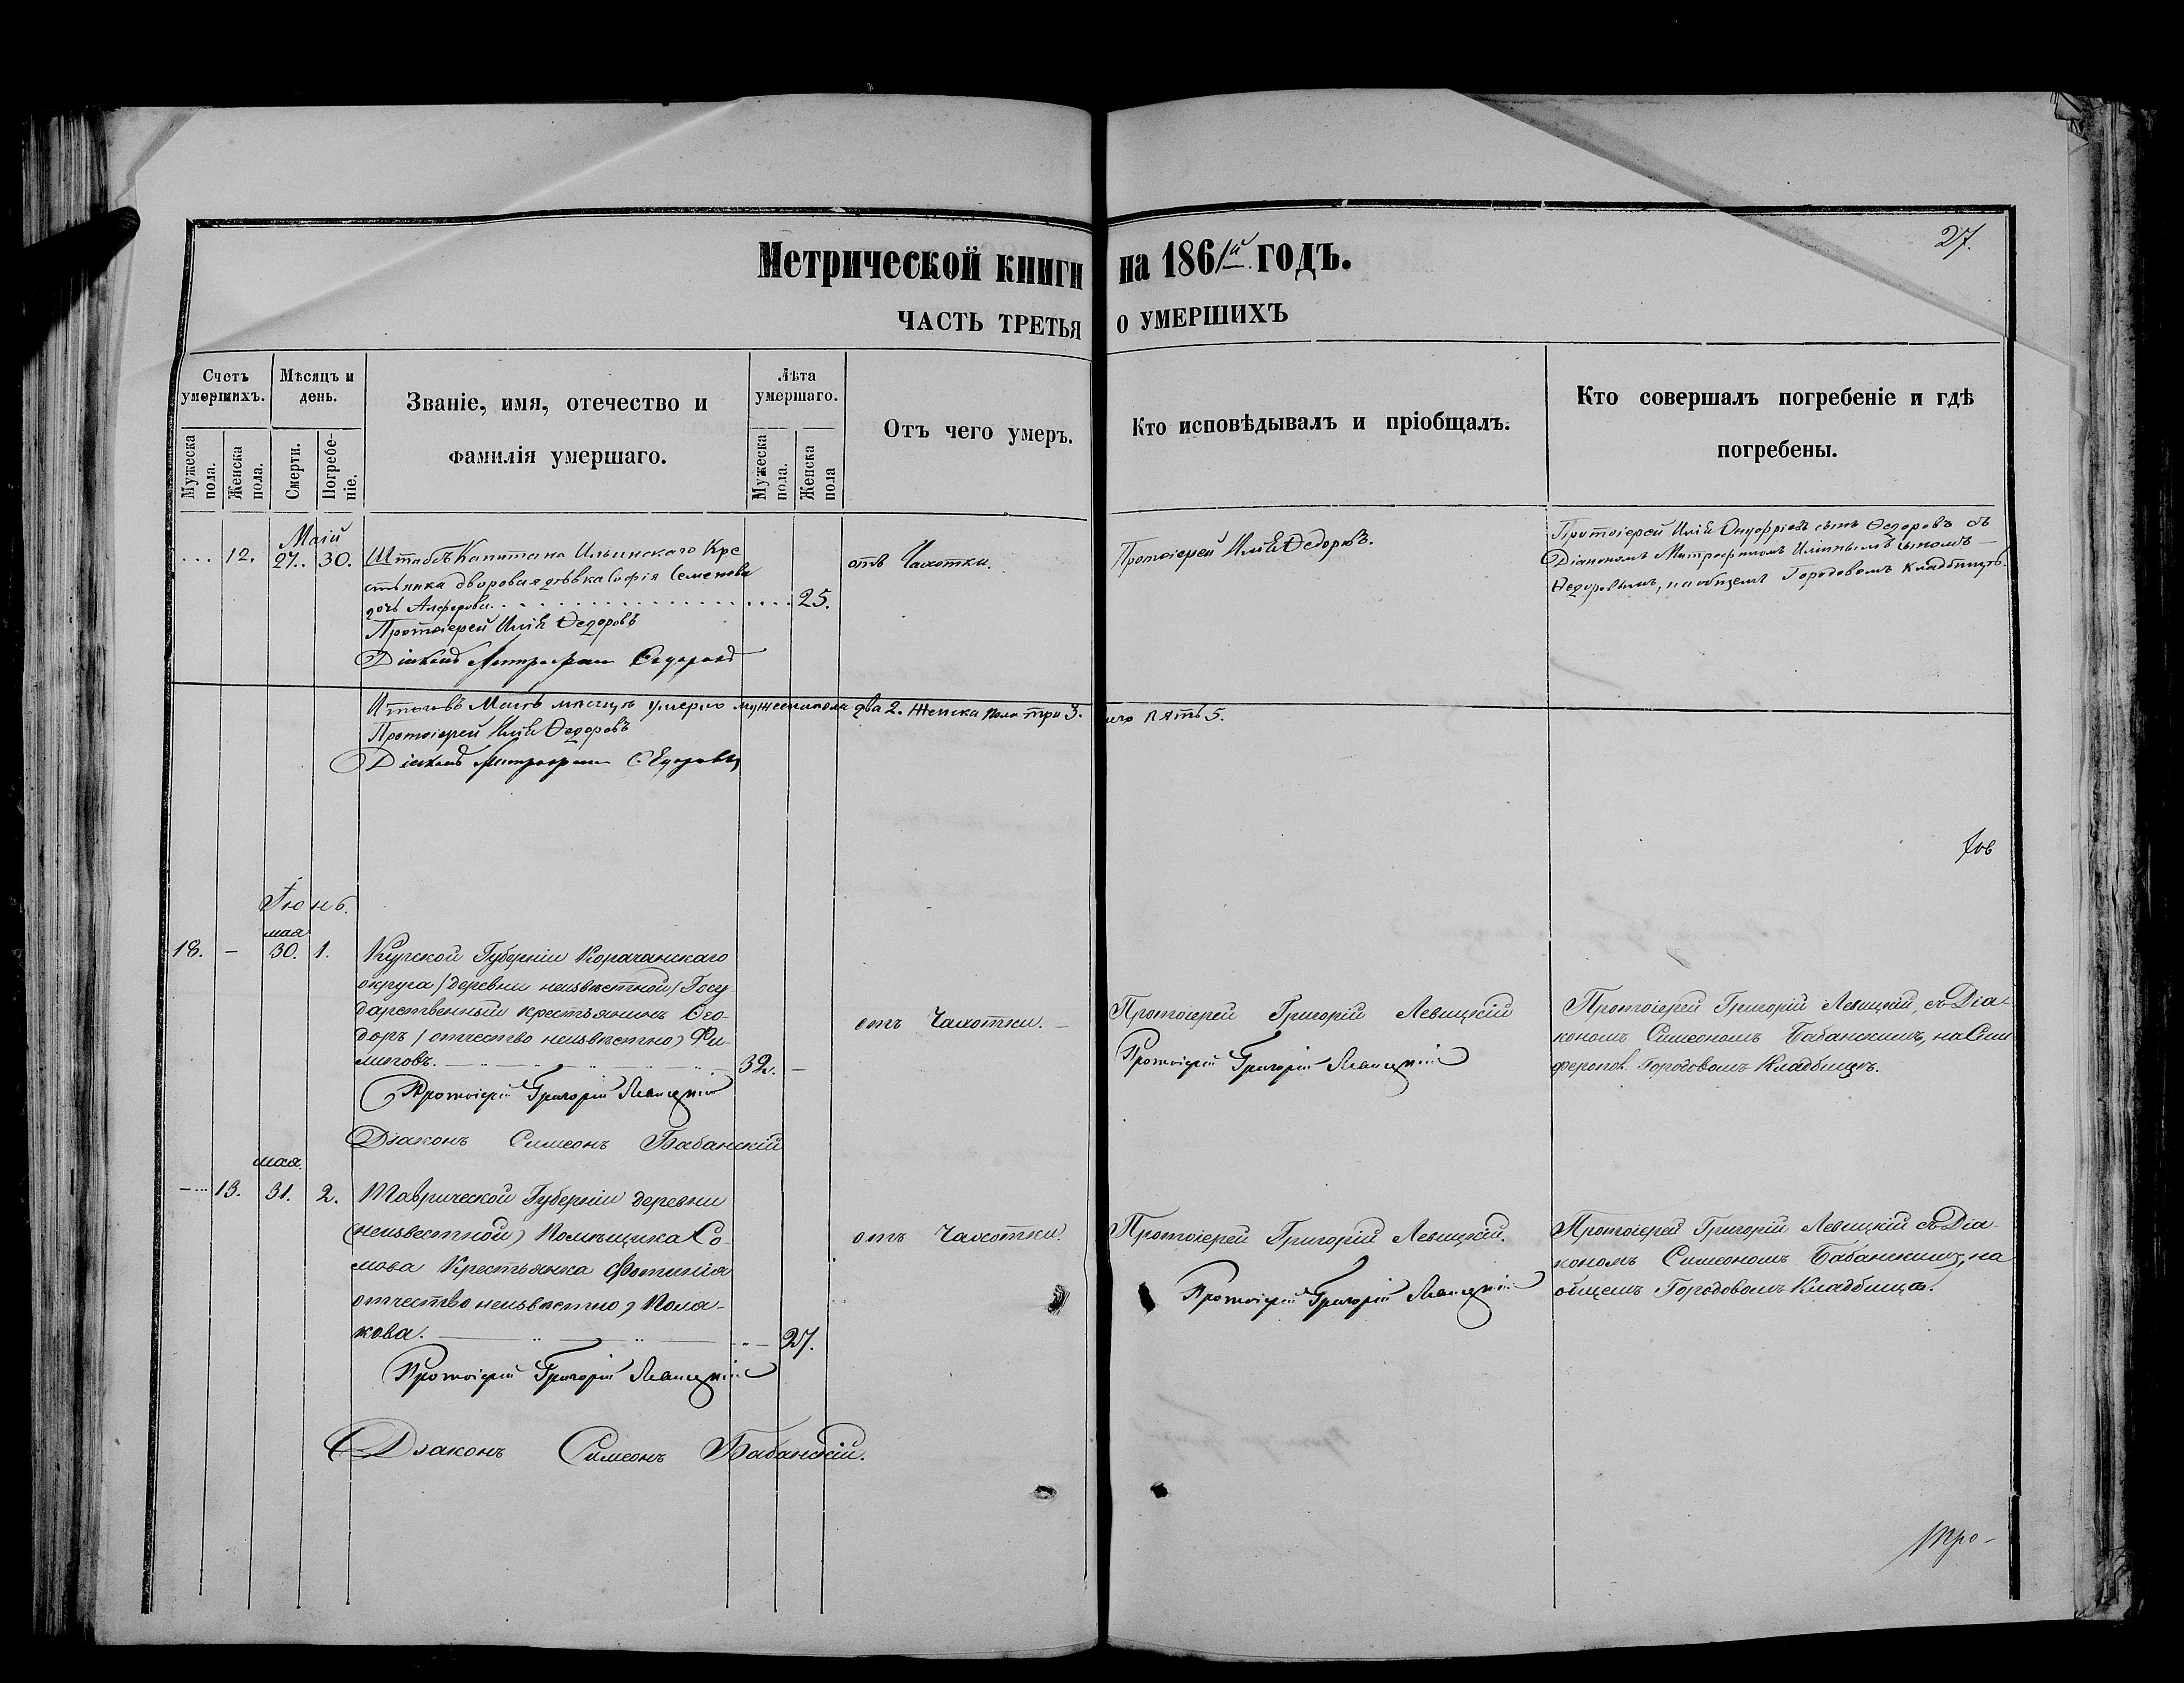 27.
Метрической книги на 1861й годъ.
ЧАСТЬ ТРЕТЬЯ О УМЕРШИХЪ
Счетъ умершихъ.
Мужеска пола.
Женска пола.
Мѣсяцъ и день.
Смерти.
Погребеніе.
Званіе, имя, отечество и
фамилія умершаго.
Лѣта умершаго.
Мужеска пола.
Женска пола
Отъ чего умеръ.
Кто исповѣдывалъ и пріобщалъ.
Кто совершалъ погребеніе и гдѣ
погребены.
Маій
... 12. 27.. 30.
Штабсъ Капитана Ильинскаго Кре
стьянка дворовая дѣвка Софія Семенова
дочь Алферова. 25.
отъ Чахотки.
Протоіерей Илія Ѳедоровъ.
Протоіерей Илія Онуфріевъ сынъ Ѳедоровъ съ
Діакономъ Митрофаномъ Иліинымъ сыномъ
Ѳедоровымъ, на общемъ Городовомъ Кладбищѣ.
Протоіерей Илія Ѳедоровъ
Діаконъ Митрофанъ Ѳедоровъ
Итого въ Маіѣ мѣсяцѣ умерло мужеска пола два 2. Женска пола три 3. пять 5.
Протоіерей Илія Ѳедоровъ
Діаконъ Митрофанъ Ѳедоровъ
Іюнь.
мая
18. – 30. 1.
Курской Губерніи Корачанскаго
округа /деревни неизвѣстной/ Госу
дарственный крестьянинъ Ѳео-
доръ /отчество неизвѣстно) Фи-
липовъ. 32. –
отъ Чахотки. –
Протоіерей Григорій Левицкій
Протоіерей Григорій Левицкій
Протоіерей Григорій Левицкій, съ Діа-
кономъ Симеономъ Бабанскимъ, на Сим
феропов. Городовомъ Кладбищѣ.
Протоіерей Григорій Левицкій
Діаконъ Симеонъ Бабанскій
мая.
– 13. 31. 2.
Таврической Губерніи деревни
(неизвестной) Помѣщика Со-
мова Крестьянка Фотинія
отчество неизвѣстно) Поля-
кова. 27.
отъ Чахотки.
Протоіерей Григорій Левицкій.
Протоіерей Григорій Левицкій
Протоіерей Григорій Левицкій съ Діа-
кономъ Симеономъ Бабанскимъ, на
общемъ Городовомъ Кладбищѣ.
Протоіерей Григорій Левицкій
Діаконъ Симеонъ Бабанскій.
Про-